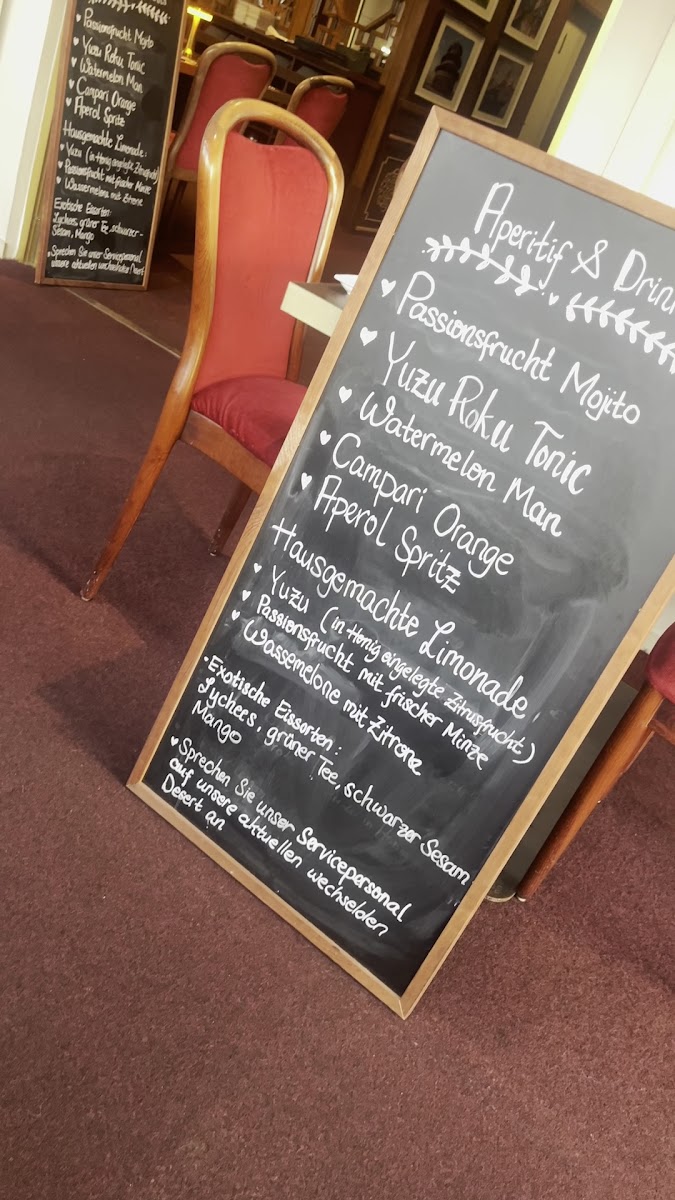 Passionsfrucht Mojito
Yuzu Roku Tonic
Watermelon Man
Campari Orange
Aperol Spritz
Hausgemachte Limonade:
Yuzu (in Honig eingelegte Zitrusfrucht)
Passionsfrucht mit frischer Minze
Wassermelone mit Zitrone
Exotische Eissorten:
Lychees, grüner Tee, schwarzer-
Sesam, Mango
Sprechen Sie unser Servicepersonal
Aperitif & Drin
Passionsfrucht Mojito
Yuzu Roku Tonic
Watermelon Man
Campari Orange
Aperol Spritz
Hausgemachte Limonade,
Yuzu (in Honig eingelegte Zitrusfrucht)
Passionsfrucht mit frischer Minze
Wassemelone mit Zitrone
Exotische Eissorten:
Lychees, grüner Tee, schwarzer Sesam
Mango
Sprechen Sie unser Servicepersonal
auf unsere aktuellen wechselden
Desert an